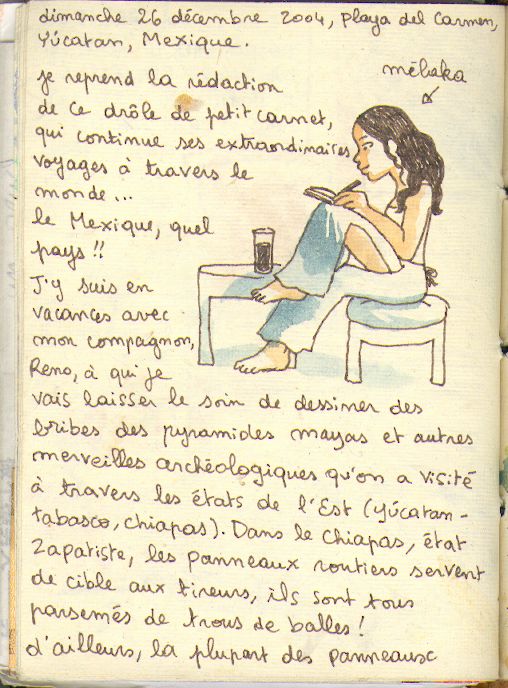 dimanche 26 décembre 2004, playa del Carmen,
Yúcatan, Mexique.
mébaka
je reprend la rédaction
de ce drôle de petit carnet,
qui continue ses extraordinaires
voyages à travers le
monde...
le Mexique, quel
pays !!
J'y suis en
vacances avec
mon compagnon,
Reno, à qui je
vais laisser le soin de dessiner des
bribes des pyramides mayas et autres
merveilles archéologiques qu'on a visité
à travers les états de l'Est (Yúcatan-
tabasco, chiapas). Dans le Chiapas, état
Zapatiste, les panneaux routiers servent
de cible aux tireurs, ils sont tous
parsemés de trous de balles !
d'ailleurs, la plupart des panneaux